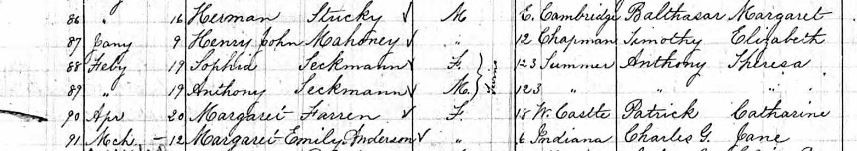 86 " 16 Herman Stucky ✓ M E. Cambridge Balthasar Margaret
87 Jany 9 Henry John Mahoney ✓ " 12 Chapman Timothy Elizabeth
88 Feby 19 Sophia Seckmann ✓ F. } Twins 123 Summer Anthony Theresa
89 " 19 Anthony Seckmann ✓ M. } 123 " " "
90 Apr 20 Margaret Farren ✓ F 18 W. Castle Patrick Catharine
91 Mch. – 12 Margaret Emily Anderson ✓ " 6 Indiana Charles G. Jane